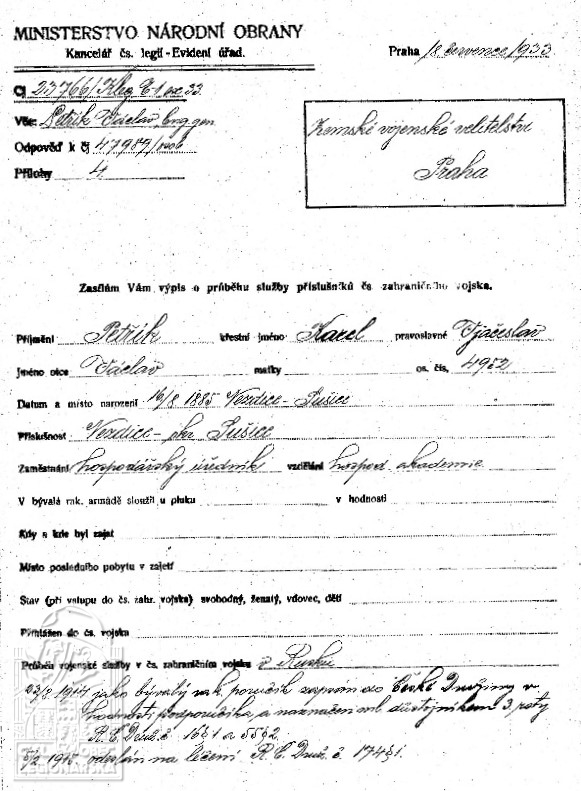 MINISTERSTVO NÁRODNÍ OBRANY
Kancelář čs. legií - Evidení úřad.
Praha 18 července 1933
Čj 23766/
Věc: Petřík Václav, brig. gen.
Odpověď k čj 47989/
Přílohy 4
Zemské vojenské velitelství
Praha
Zasílám Vám výpis o průběhu služby příslušníků čs. zahraničního vojska.
Příjmění Petřík křestní jméno Karel pravoslavné Vjačeslav
Jméno otce Václav matky os. čís. 4952
Datum a místo narození 16/8 1885 Vezdice - Sušice
Příslušnost Vezdice - okr Sušice
Zaměstnání hospodářský úředník vzdělání hospod. akademie
V bývalá rak. armádě sloužil u pluku v hodnosti
Kdy a kde byl zajat
Místo posledního pobytu v zajetí
Stav (při vstupu do čs. zahr. vojska) svobodný, ženatý, vdovec, dětí
Přihlášen do čs. vojska
Průběh vojenské služby v čs. zahraničním vojsku v Rusku
23/8 1914 jako bývalý rak. poručík zapsán do České Družiny v
hodnosti podporučíka, a naznačen ml. důstojníkem 3. roty
R. Č. Druž. č. 16§1 a 55§2.
5/2 1915 odeslán na léčení R. Č. Druž. č. 174§1.